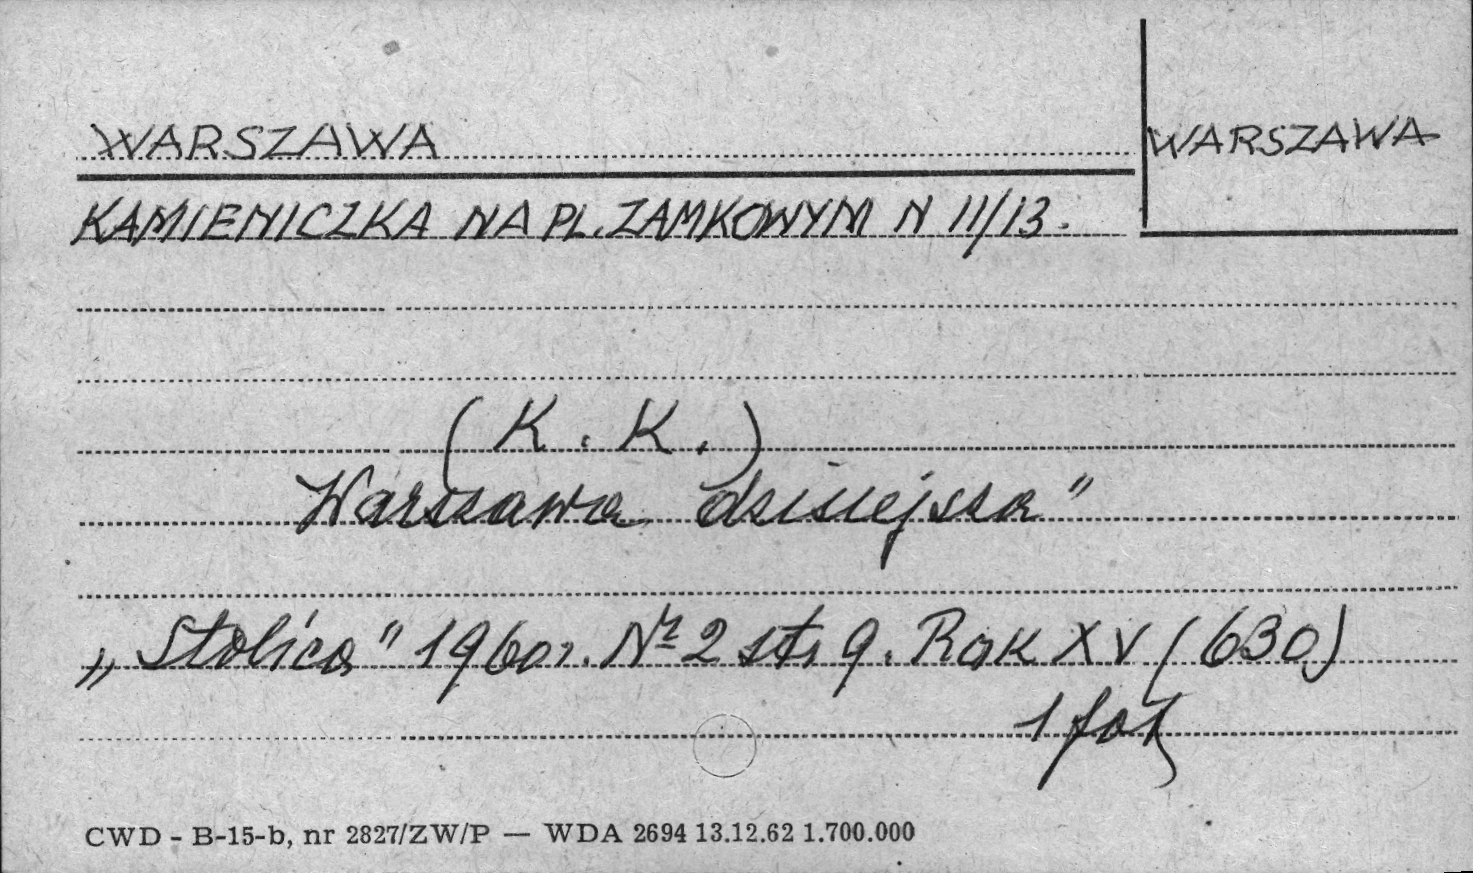 WARSZAWA
WARSZAWA
KAMIENICZKA NA PL. ZAMKOWYM N 11/13.
(K. K.)
Warszawa dzisiejsza"
„Stolica" 1960 r. Nr 2 str. 9. Rok XV (630)
1 fot
CWD - B-15-b, nr 2827/ZW/P — WDA 2694 13.12.62 1.700.000